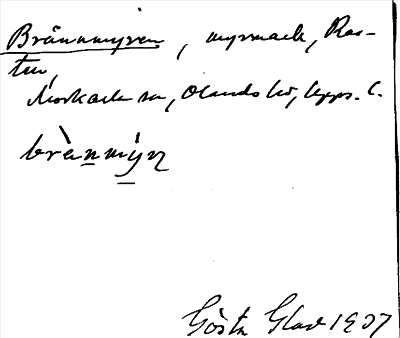 Brännmyren, myrmark, Ras-
ten,
Morkarla sn, Olands hd, Upps. l.
brànmýṛ
Gösta Glad 1937